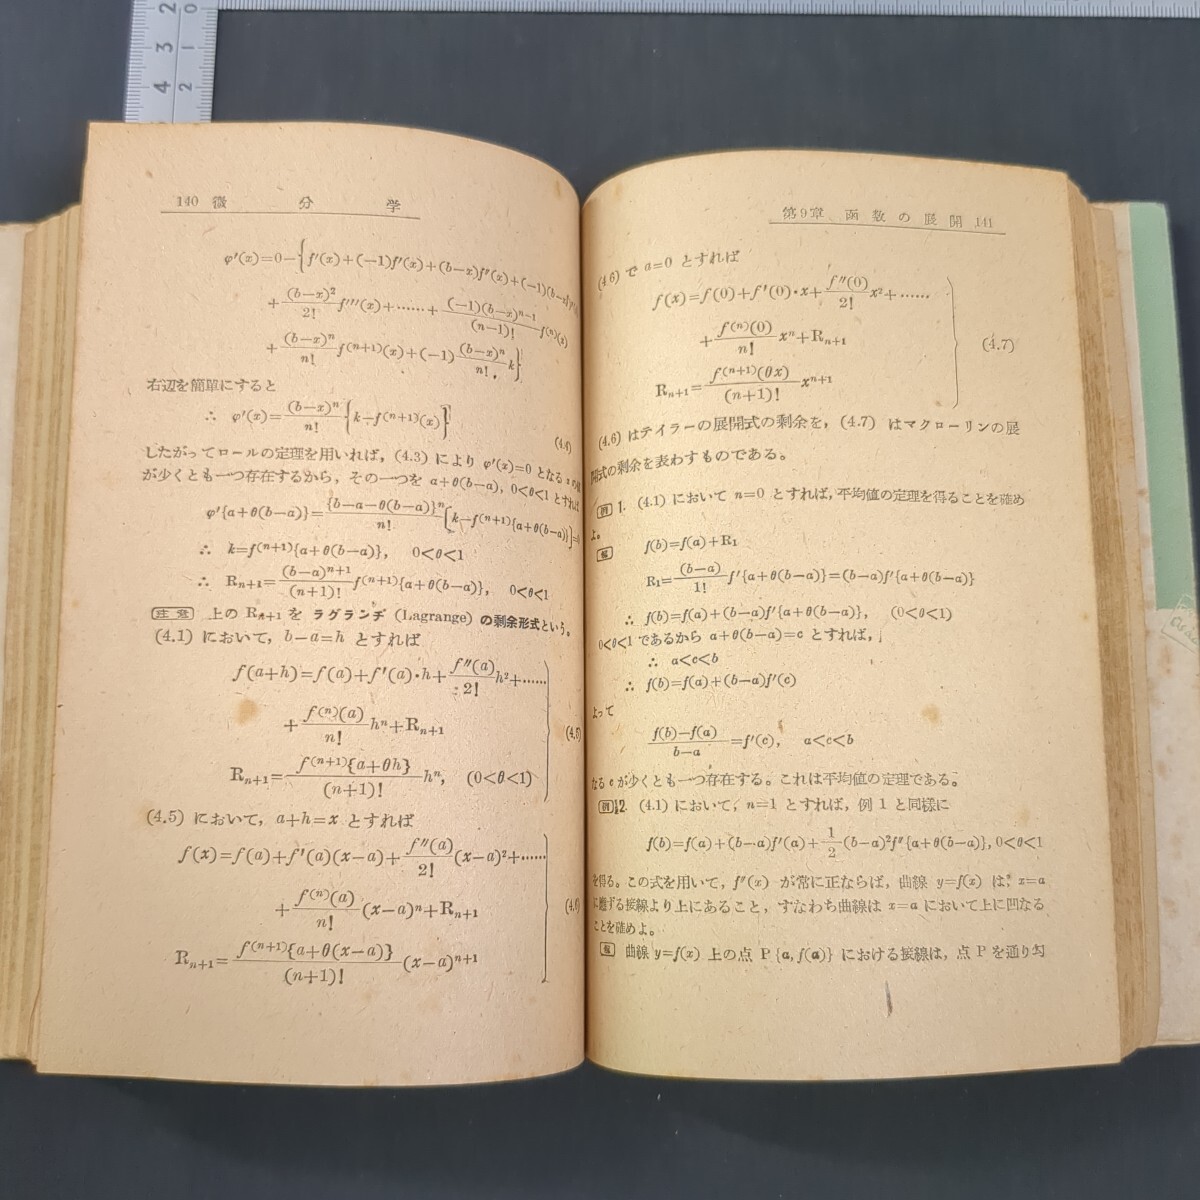 140 微分学
φ'(x)=0−{f'(x)+(−1)f'(x)+(b−x)f''(x)+(−1)(b−x)
+\frac{(b−x)^2}{2!}f'''(x)+……+\frac{(−1)(b−x)^{n−1}}{(n−1)!}f^{(n)}(x)
+\frac{(b−x)^n}{n!}f^{(n+1)}(x)+(−1)\frac{(b−x)^n}{n!}k}
右辺を簡単にすると
∴ φ'(x)=\frac{(b−x)^n}{n!}{k−f^{(n+1)}(x)} (4.4)
したがってロールの定理を用いれば, (4.3) により φ'(x)=0 となる
が少くとも一つ存在するから, その一つを a+θ(b−a), 0<θ<1 とすれば
φ'{a+θ(b−a)}=\frac{{b−a−θ(b−a)}^n}{n!}[k−f^{(n+1)}{a+θ(b−a)}]=0
∴ k=f^{(n+1)}{a+θ(b−a)}, 0<θ<1
∴ R_{n+1}=\frac{(b−a)^{n+1}}{(n+1)!}f^{(n+1)}{a+θ(b−a)}, 0<θ<1
注意 上の R_{n+1} を ラグランヂ (Lagrange) の剰余形式という。
(4.1) において, b−a=h とすれば
f(a+h)=f(a)+f'(a)·h+\frac{f''(a)}{2!}h^2+……
+\frac{f^{(n)}(a)}{n!}h^n+R_{n+1} (4.5)
R_{n+1}=\frac{f^{(n+1)}{a+θh}}{(n+1)!}h^n, (0<θ<1)
(4.5) において, a+h=x とすれば
f(x)=f(a)+f'(a)(x−a)+\frac{f''(a)}{2!}(x−a)^2+……
+\frac{f^{(n)}(a)}{n!}(x−a)^n+R_{n+1} (4.6)
R_{n+1}=\frac{f^{(n+1)}{a+θ(x−a)}}{(n+1)!}(x−a)^{n+1}
第9章 函数の展開 141
(4.6) で a=0 とすれば
f(x)=f(0)+f'(0)·x+\frac{f''(0)}{2!}x^2+……
+\frac{f^{(n)}(0)}{n!}x^n+R_{n+1} (4.7)
R_{n+1}=\frac{f^{(n+1)}(θx)}{(n+1)!}x^{n+1}
(4.6) はテイラーの展開式の剰余を, (4.7) はマクローリンの展
開式の剰余を表わすものである。
例 1. (4.1) において n=0 とすれば, 平均値の定理を得ることを確め
よ。
解 f(b)=f(a)+R_1
R_1=\frac{(b−a)}{1!}f'{a+θ(b−a)}=(b−a)f'{a+θ(b−a)}
∴ f(b)=f(a)+(b−a)f'{a+θ(b−a)}, (0<θ<1)
0<θ<1 であるから a+θ(b−a)=c とすれば,
∴ a<c<b
∴ f(b)=f(a)+(b−a)f'(c)
よって
\frac{f(b)−f(a)}{b−a}=f'(c), a<c<b
なる c が少くとも一つ存在する。これは平均値の定理である。
例 2. (4.1) において, n=1 とすれば, 例 1 と同様に
f(b)=f(a)+(b−a)f'(a)+\frac{1}{2}(b−a)^2f''{a+θ(b−a)}, 0<θ<1
を得る。この式を用いて, f''(x) が常に正ならば, 曲線 y=f(x) は, x=a
に於ける接線より上にあること, すなわち曲線は x=a において上に凹なる
ことを確めよ。
解 曲線 y=f(x) 上の点 P{a, f(a)} における接線は, 点 P を通り勾